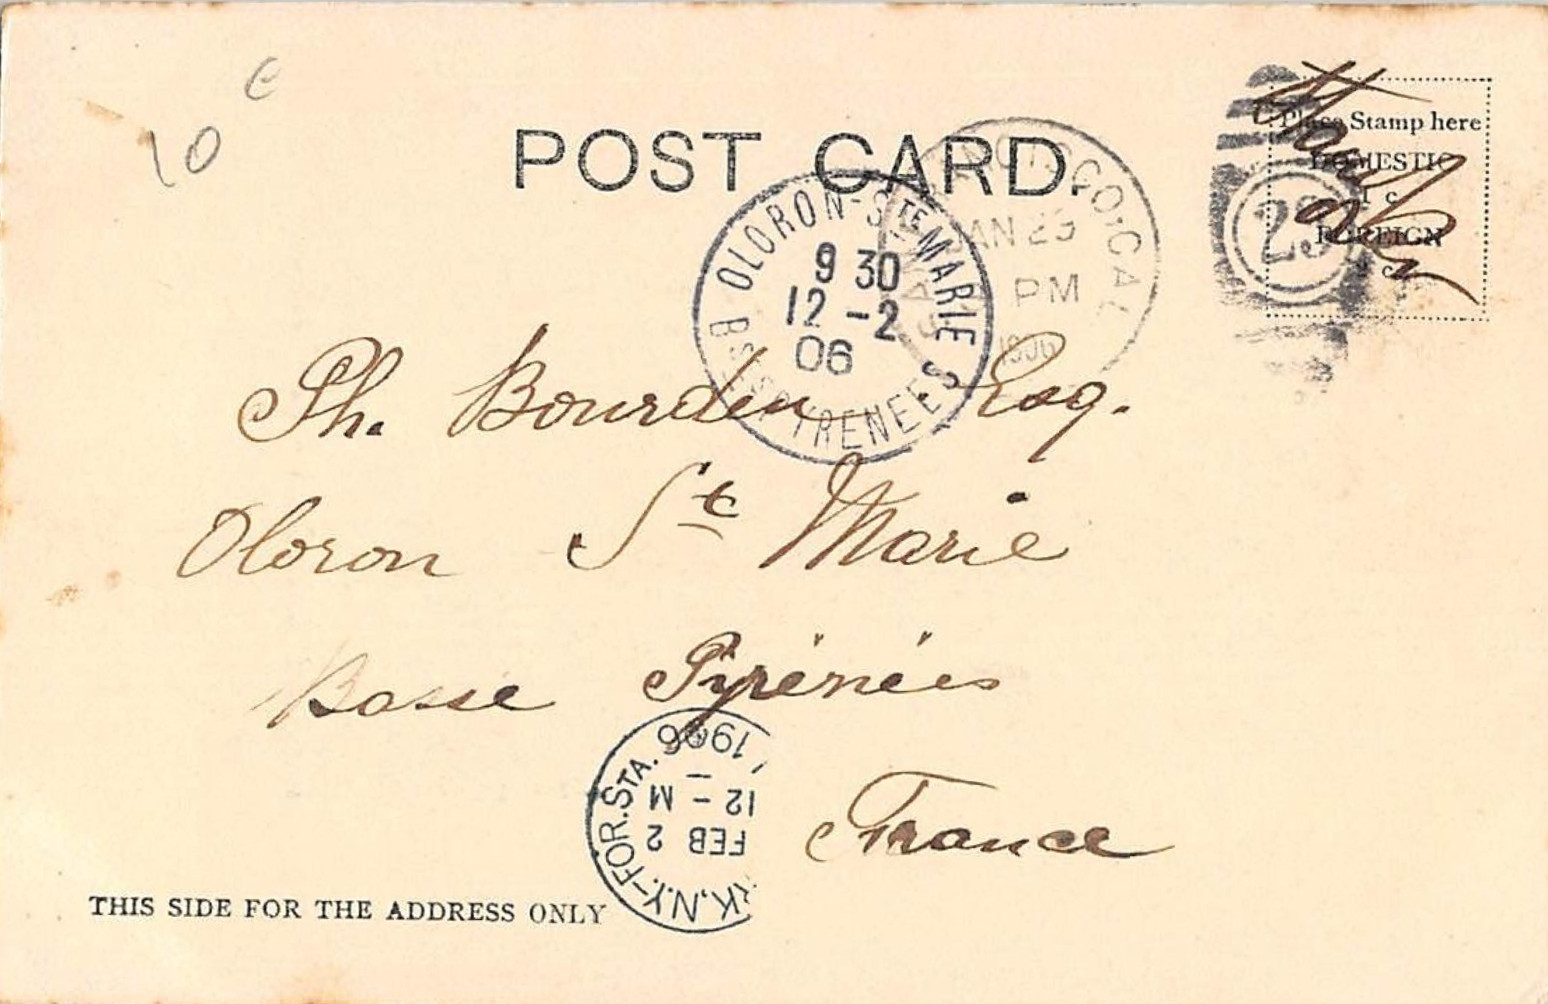 10 €
POST CARD.
Place Stamp here
DOMESTIC
1 c
FOREIGN
c
23
CISCO, CAL
JAN 23
PM
1906
OLORON-STE MARIE
9 30
12 -2
06
BSES PYRENEES
Ph. Bourden Esq.
Oloron St Marie
Basse Pyrénées
France
K, N.Y.-FOR. STA.
FEB 2
12 - M
1906
THIS SIDE FOR THE ADDRESS ONLY